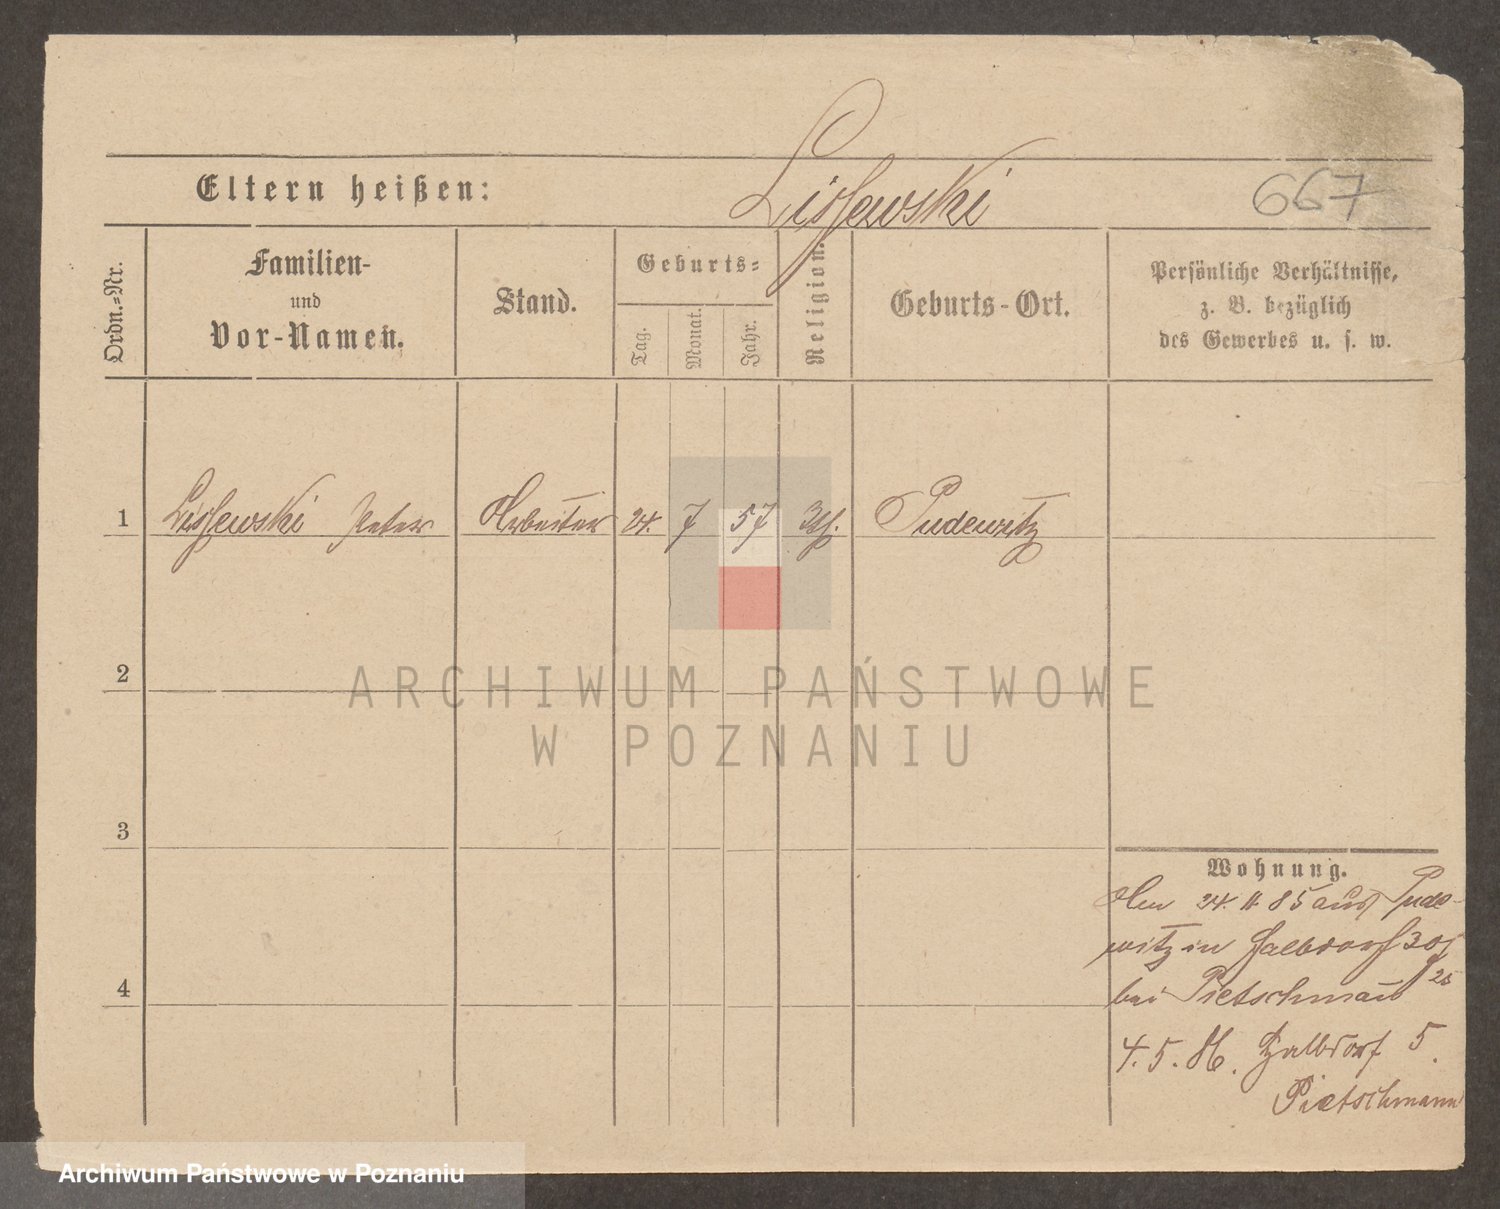 Lissewski
Eltern heißen:
667
Ordn.=Nr.
Familien-
und
Vor-Namen.
Stand.
Geburts=
Tag.
Monat.
Jahr.
Religion.
Geburts-Ort.
Persönliche Verhältnisse,
z. B. bezüglich
des Gewerbes u. s. w.
1 Lissewski Peter Arbeiter 24. 7 57 Pudewitz
2
ARCHIWUM PAŃSTWOWE
W POZNANIU
3
Wohnung.
24. 11. 85 aus Pude-
witz in
4
bei Pietschmann
4. 5. 86. 5.
Pietschmann
Archiwum Państwowe w Poznaniu